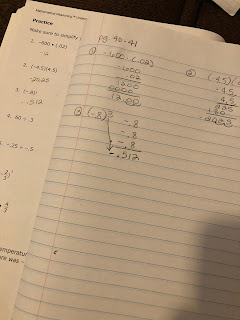 Mathematical Reasoning
Practice
Make sure to simplify
1. -600 • (.02)
12
2. (-4.5)(4.5)
-20.25
3. (-.8)³
-.512
4. 60 ÷ 3
5. -.25 ÷ -.5
temperatur
ere was -
pg. 40-41
① -600 • (.02)
600
.02
1200
0000
12.00
② (-4.5)(
-4.5
4.5
225
③ (-.8)³
-.8
-.8
-.8
-.512